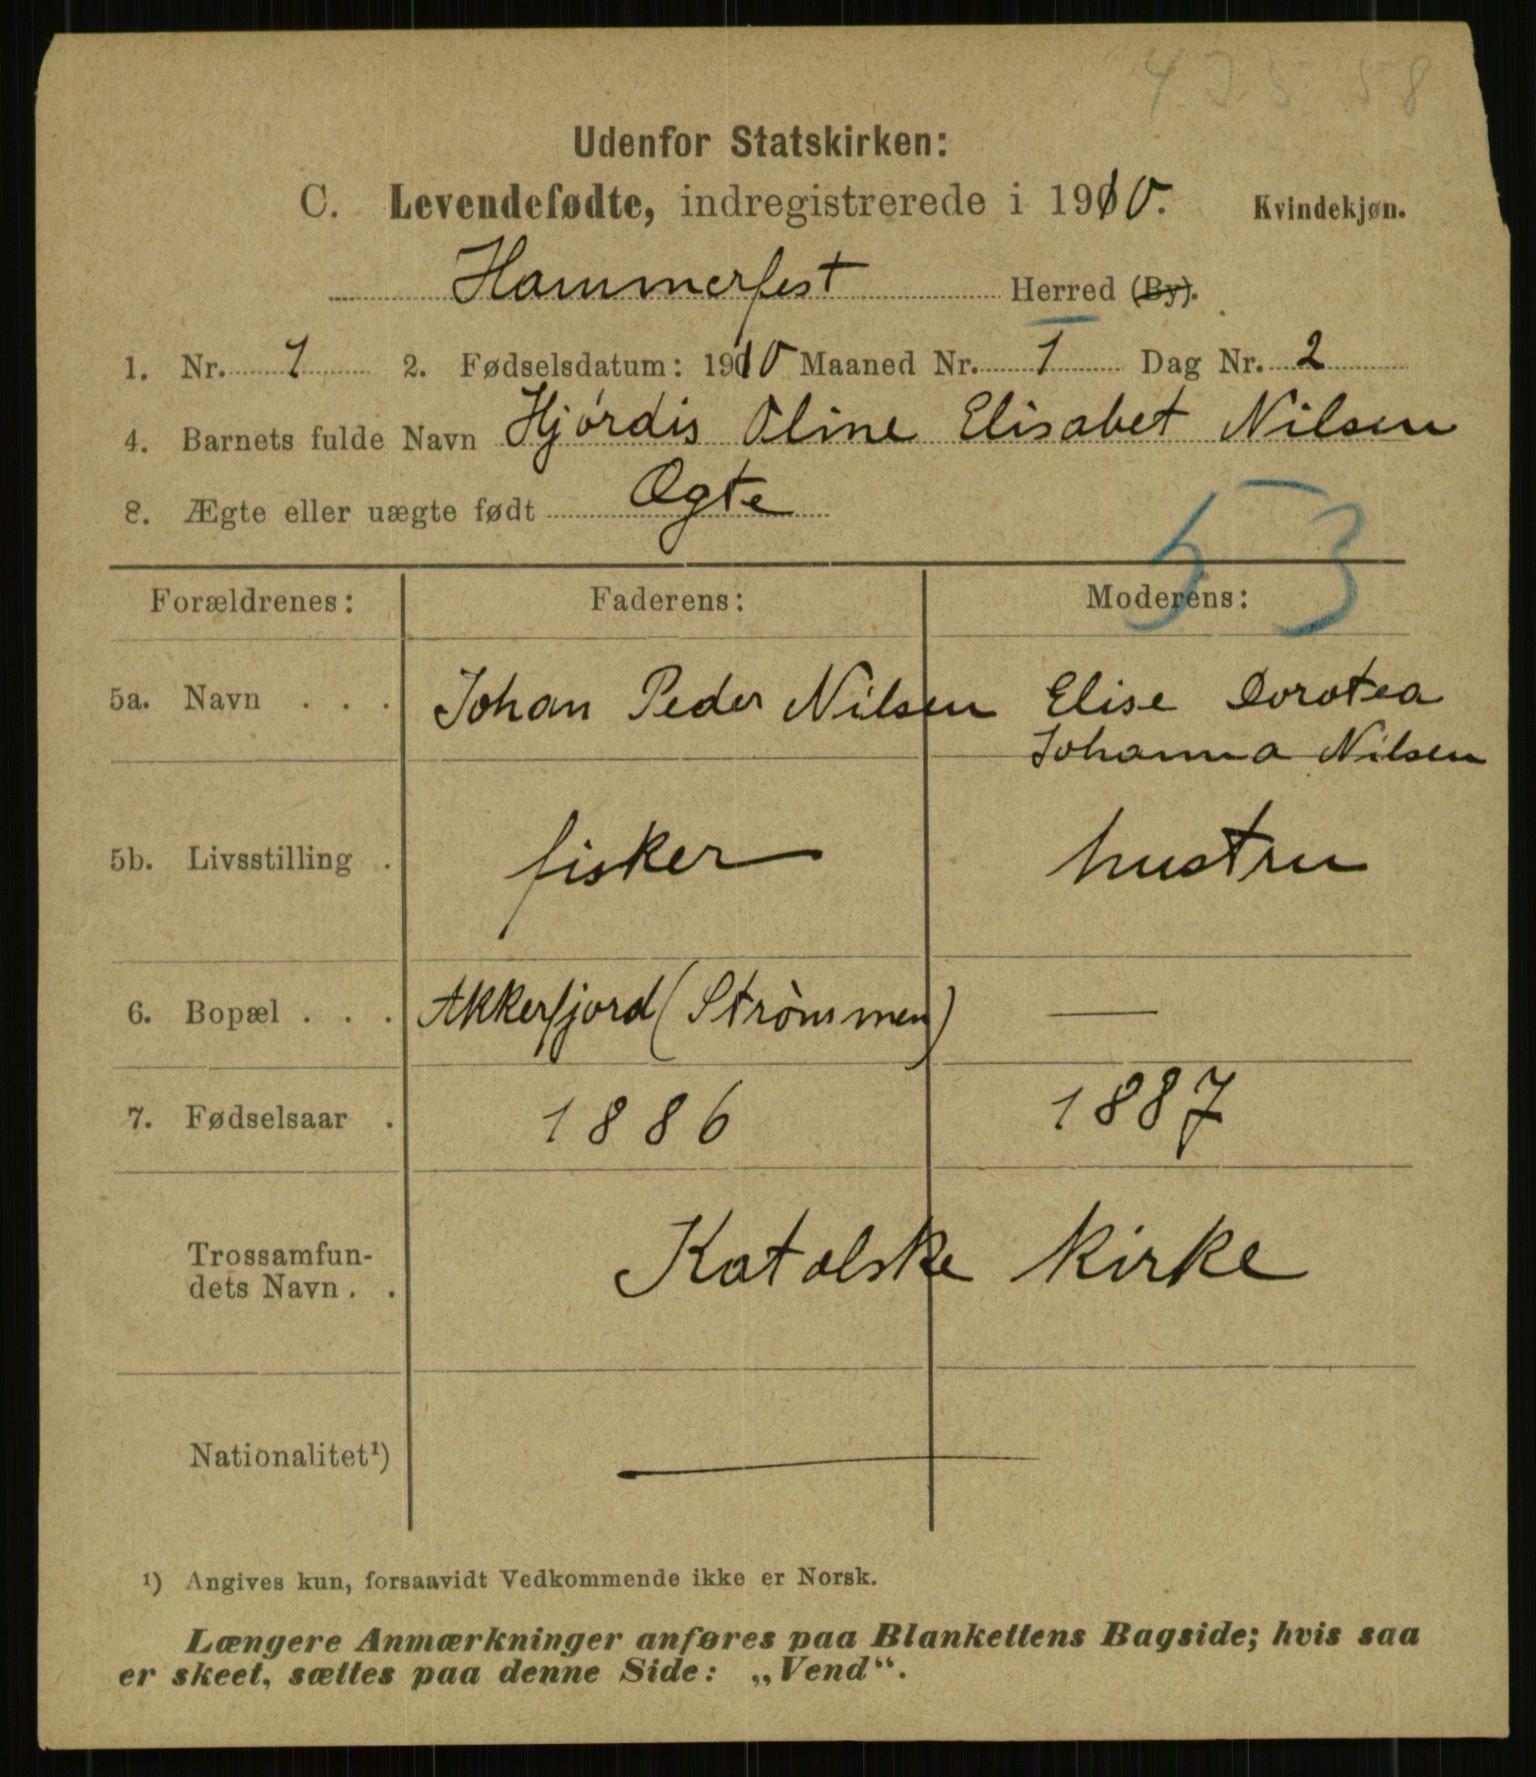 Udenfor Statskirken:
C. Levendefødte, indregistrerede i 1910. Kvindekjøn.
Hammerfest Herred (By).
1. Nr. 1 2. Fødselsdatum: 1910 Maaned Nr. 1 Dag Nr. 2
4. Barnets fulde Navn Hjørdis Oline Elisabet Nilsen
8. Ægte eller uægte født Ægte
53
Forældrenes: Faderens: Moderens:
5a. Navn . . . Johan Peder Nilsen Elise Dorotea
Johanna Nilsen
5b. Livsstilling . fisker hustru
6. Bopæl . . . Akkerfjord (Strømmen) —
7. Fødselsaar . 1886 1887
Trossamfun-
dets Navn . . Katolske Kirke
Nationalitet¹) —
¹) Angives kun, forsaavidt Vedkommende ikke er Norsk.
Længere Anmærkninger anføres paa Blankettens Bagside; hvis saa
er skeet, sættes paa denne Side: „Vend“.